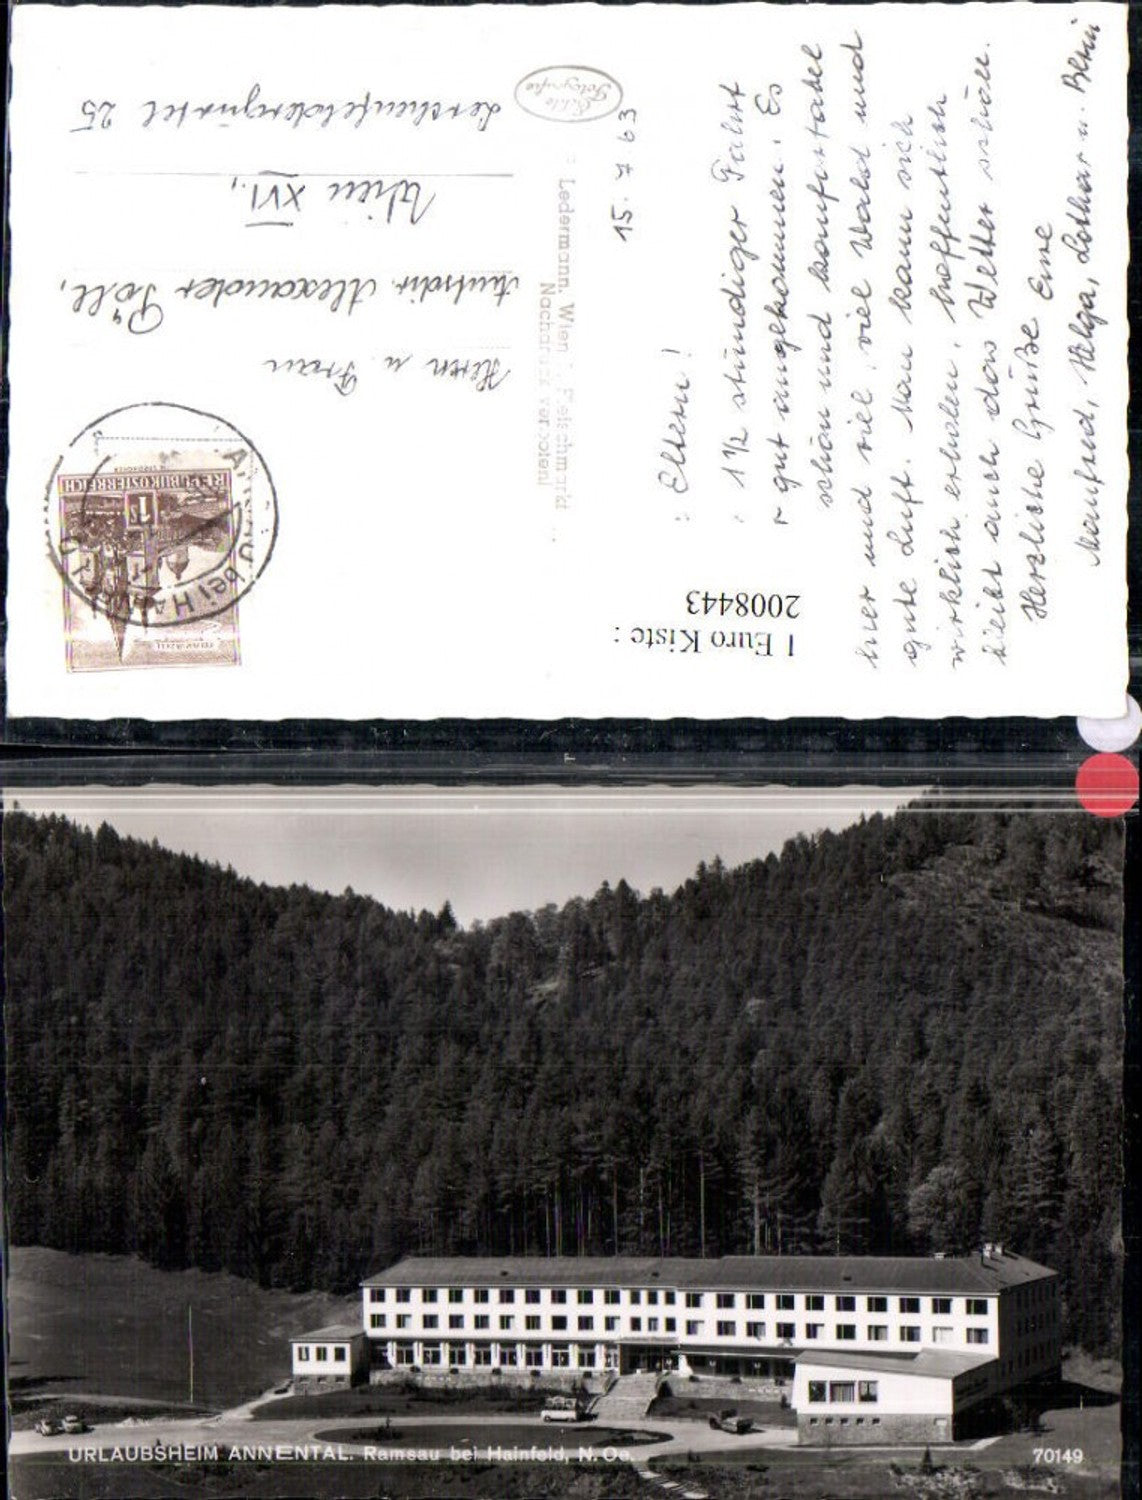 Eltern!
1½ stündiger Fahrt
gut angekommen. Es
schön und komfortabel
hier und viel, viel Wald und
gute Luft. Man kann sich
wirklich erholen, hoffentlich
bleibt auch das Wetter schön.
Herzliche Grüße Eure
Manfred, Helga, Lothar u.
15. 7 63
Echte
Fotografie
Ledermann, Wien I., Fleischmarkt
Nachdruck verboten!
Herrn u. Frau
Amtsdir. Alexander Pöll,
Wien XVI.,
Lerchenfeldergürtel 25
REPUBLIK ÖSTERREICH
1 S
bei HAINFELD
1 Euro Kiste :
2008443
URLAUBSHEIM ANNENTAL. Ramsau bei Hainfeld, N. Oe.
70149